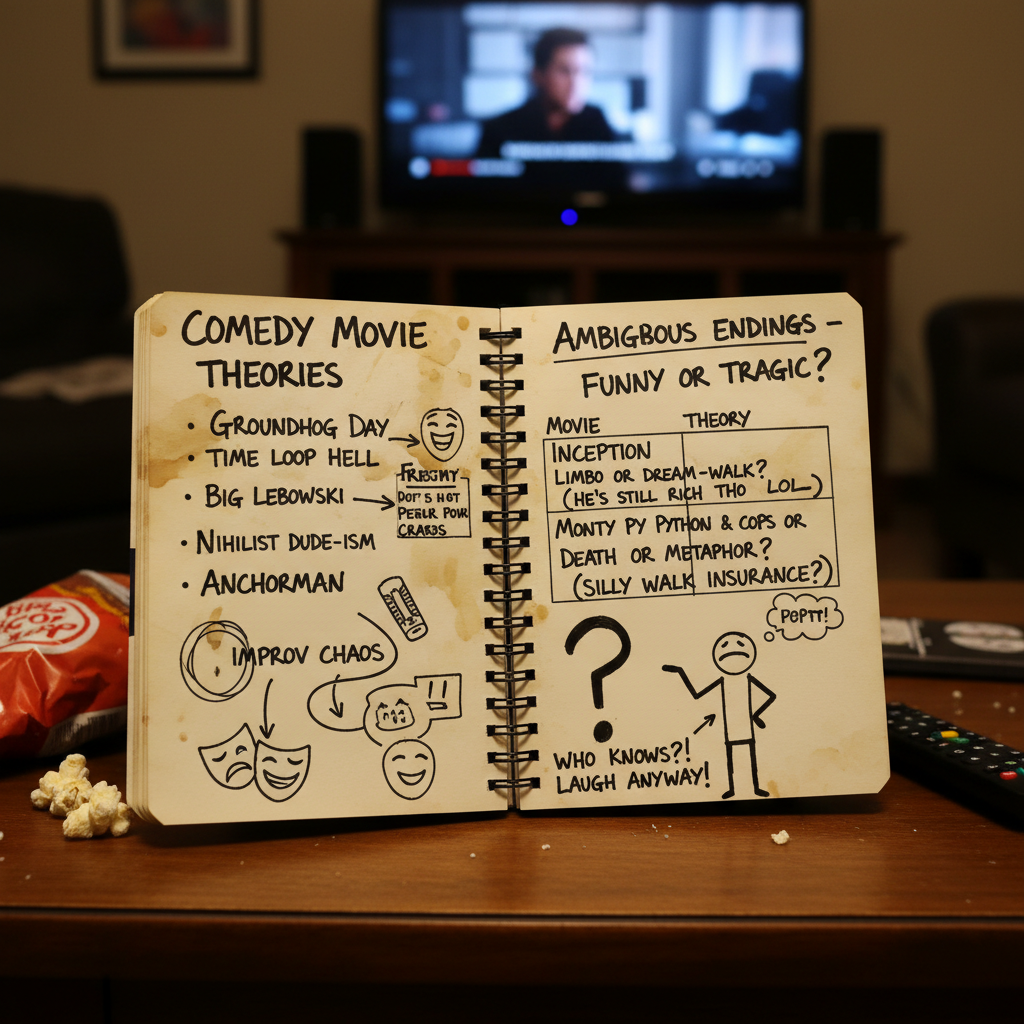 COMEDY MOVIE
THEORIES
• GROUNDHOG DAY
• TIME LOOP HELL
• BIG LEBOWSKI
DOP'S HOT
PEELR POUR
• NIHILIST DUDE-ISM
• ANCHORMAN
IMPROV CHAOS
AMBIGBOUS ENDINGS –
FUNNY OR TRAGIC?
MOVIE THEORY
INCEPTION
LIMBO OR DREAM-WALK?
(HE'S STILL RICH THO LOL)
MONTY PY PYTHON & COPS OR
DEATH OR METAPHOR?
(SILLY WALK INSURANCE?)
PePTT!
?
WHO KNOWS?!
LAUGH ANYWAY!